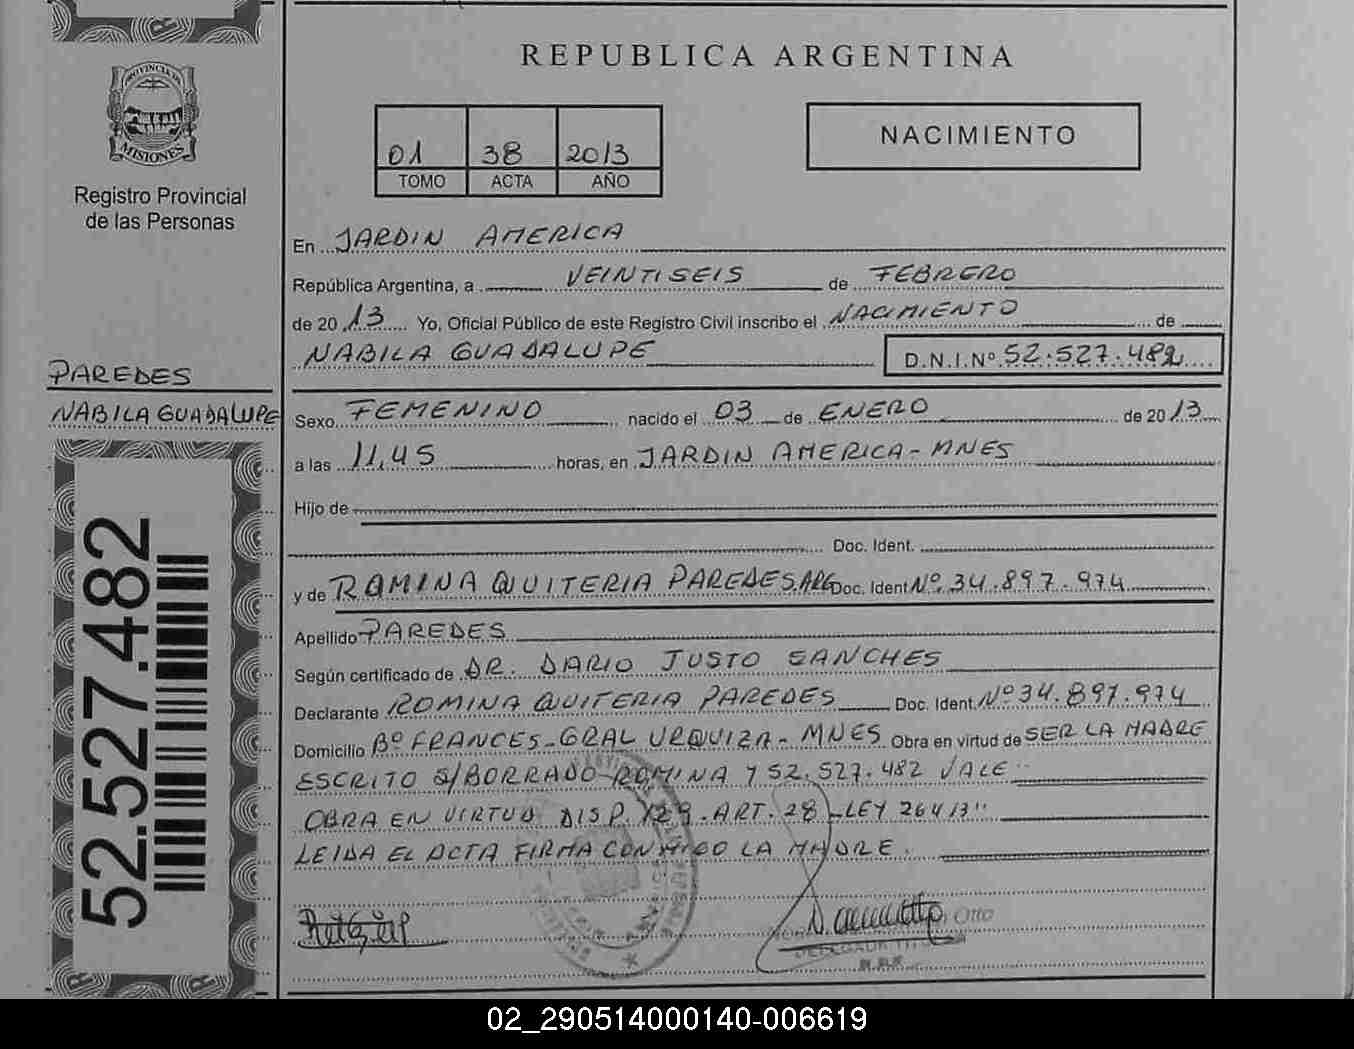 REPUBLICA ARGENTINA
PROVINCIA DE
MISIONES
Registro Provincial
de las Personas
01 38 2013
TOMO ACTA AÑO
NACIMIENTO
En JARDIN AMERICA
República Argentina, a VEINTISEIS de FEBRERO
de 20 13 Yo, Oficial Público de este Registro Civil inscribo el NACIMIENTO de
NABILA GUADALUPE D.N.I.Nº 52.527.482
PAREDES
NABILA GUADALUPE
52.527.482
Sexo FEMENINO nacido el 03 de ENERO de 20 13
a las 11,45 horas, en JARDIN AMERICA-MNES
Hijo de
Doc. Ident.
y de ROMINA QUITERIA PAREDES.ARG Doc. Ident Nº.34.897.974
Apellido PAREDES
Según certificado de DR. DARIO JUSTO SANCHES
Declarante ROMINA QUITERIA PAREDES Doc. Ident. Nº 34.897.974
Domicilio Bº FRANCES-GRAL URQUIZA-MNES Obra en virtud de SER LA MADRE
ESCRITO S/BORRADO-ROMINA Y 52.527.482 VALE
OBRA EN VIRTUD DISP.129.ART.28-LEY 26413"
LEIDA EL ACTA FIRMA CONMIGO LA MADRE.
Otto
02_290514000140-006619